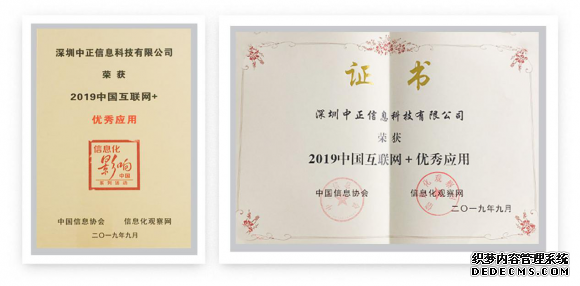 深圳中正信息科技有限公司
荣获
2019中国互联网+
优秀应用
信息化
影响
中国
中国信息协会 信息化观察网
二〇一九年九月
证书
深圳中正信息科技有限公司
荣获
2019中国互联网+优秀应用
中国信息协会 信息化观察网
二〇一九年九月
织梦内容管理系统
DEDECMS.COM